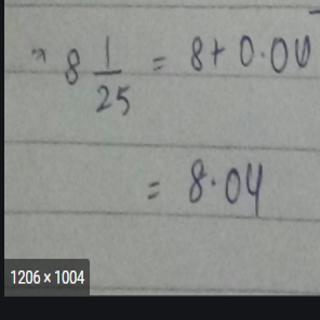 → 8 1/25 = 8 + 0.04
= 8.04
1206 × 1004